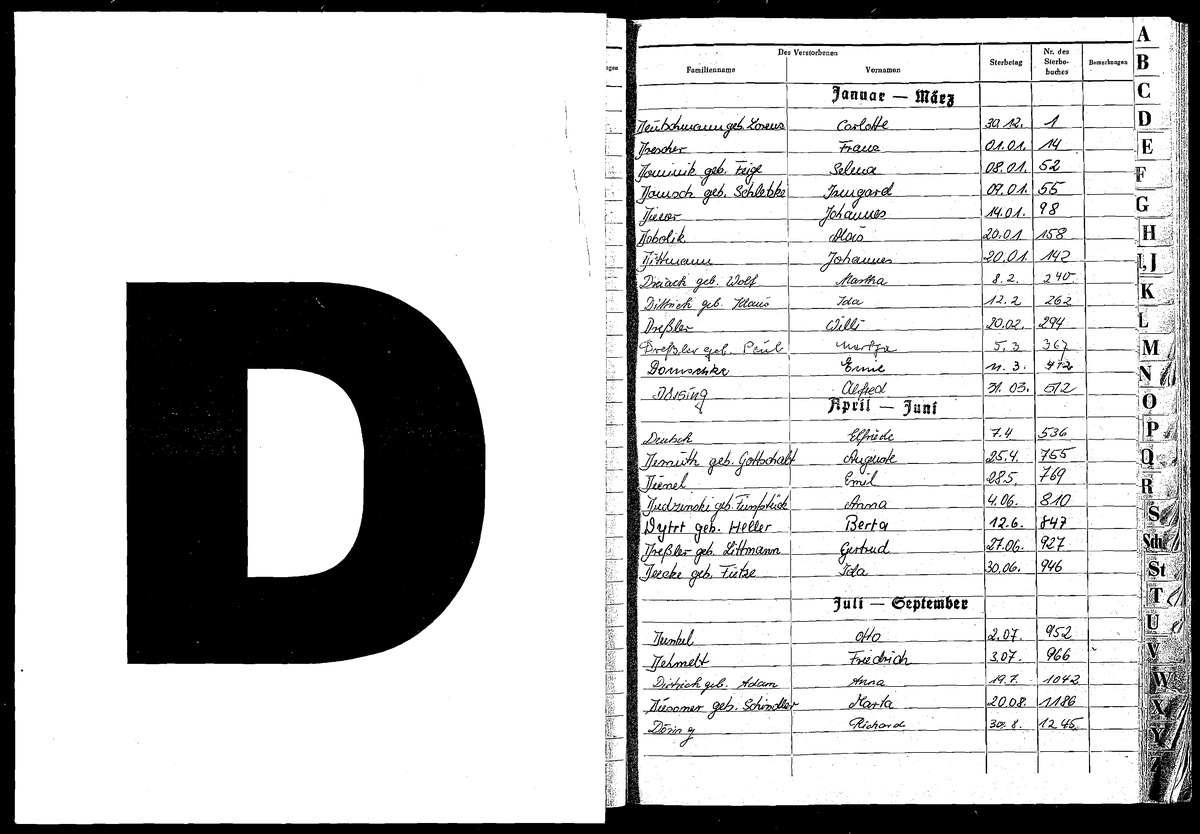 D
Des Verstorbenen
Familienname Vornamen Sterbetag Nr. des Sterbebuches Bemerkungen
Januar — März
Deutschmann geb. Lorenz Carlotte 30.12. 1
Drescher Franz 01.01. 14
Dominik geb. Feige Selma 08.01. 52
Domsch geb. Schletzke Irmgard 09.01. 55
Johannes 14.01. 98
Dobolik Alois 20.01. 158
Dittmann Johannes 20.01. 142
Dreiack geb. Wolf Martha 8.2. 240
Dittrich geb. Klaus Ida 12.2 262
Dreßler Willi 20.02. 294
Dreßler geb. Paul 5.3 367
Domschke 11.3.
Döring Alfred 31.03. 512
April — Juni
Deutsch Elfriede 7.4 536
Demuth geb. Gottschalk Auguste 25.4. 755
Dienel Emil 28.5. 769
Anna 4.06. 810
Dytrt geb. Heller Berta 12.6. 847
Dreßler geb. Littmann Gertrud 27.06. 927
Deecke geb. Fietze Ida 30.06. 946
Juli — September
Dunkel Otto 2.07. 952
Dehmelt Friedrich 3.07. 966
Dittrich geb. Adam Anna 19.7. 1042
geb. Schindler Marta 20.08. 1186
Döring Richard 30.8. 1245
A
B
C
D
E
F
G
H
I,J
K
L
M
N
O
P
Q
R
S
Sch
St
T
U
V
W
X
Y
Z